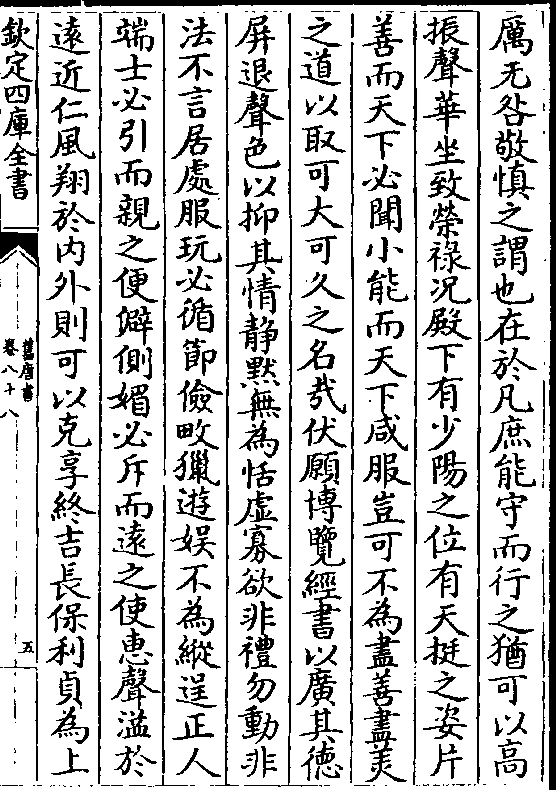 厲无咎敬慎之謂也在於凡庶能守而行之猶可以高
振聲華坐致榮祿况殿下有少陽之位有天挺之姿片
善而天下必聞小能而天下咸服豈可不為盡善盡美
之道以取可大可久之名㦲伏願博覽經書以廣其徳
屏退聲色以抑其情静黙無為恬虚寡欲非禮勿動非
法不言居處服玩必循節儉畋獵遊娱不為縱逞正人
端士必引而親之便僻側媚必斥而遠之使惠聲溢於
遠近仁風翔於内外則可以克享終吉長保利貞為上
欽定四庫全書
舊唐書
卷八十八
五